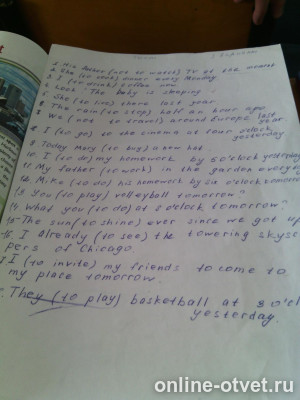 2 His father (not to watch) TV at the moment
3 She (to cook) dinner every Monday
I (to drink) coffee now
4 Look! The baby is sleeping.
5 She (to live) there last year
6 The rain (to stop) half an hour ago
7 We (not to travel) around Europe last year.
8 I (to go) to the cinema at four o'clock yesterday
9. Today Mary (to buy) a new hat
10. I (to do) my homework by 5 o'clock yesterday
11. My father (to work) in the garden every
12. Mike (to do) his homework by six o'clock tomorrow
13 You (to play) volleyball tomorrow
14 What you (to do) at 7 o'clock tomorrow
15 The sun (to shine) ever since we got up
16 I already (to see) the towering skysc
pers of Chicago.
I (to invite) my friends to come to
my place tomorrow.
They (to play) basketball at 8 o'cl
yesterday.
online-otvet.ru